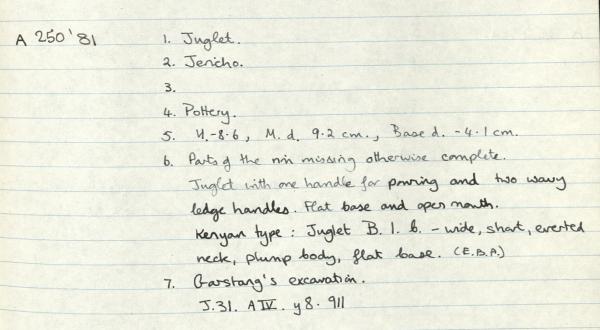 A 250'81 1. Juglet.
2. Jericho.
3.
4. Pottery.
5. H.-8.6, M.d. 9.2 cm., Base d. -4.1 cm.
6. Parts of the rim missing otherwise complete.
Juglet with one handle for pouring and two wavy
ledge handles. Flat base and open mouth.
Kenyan type : Juglet B. 1. b. - wide, short, everted
neck, plump body, flat base. (E.B.A.)
7. Garstang's excavation.
J.31. A IV. y8. 911